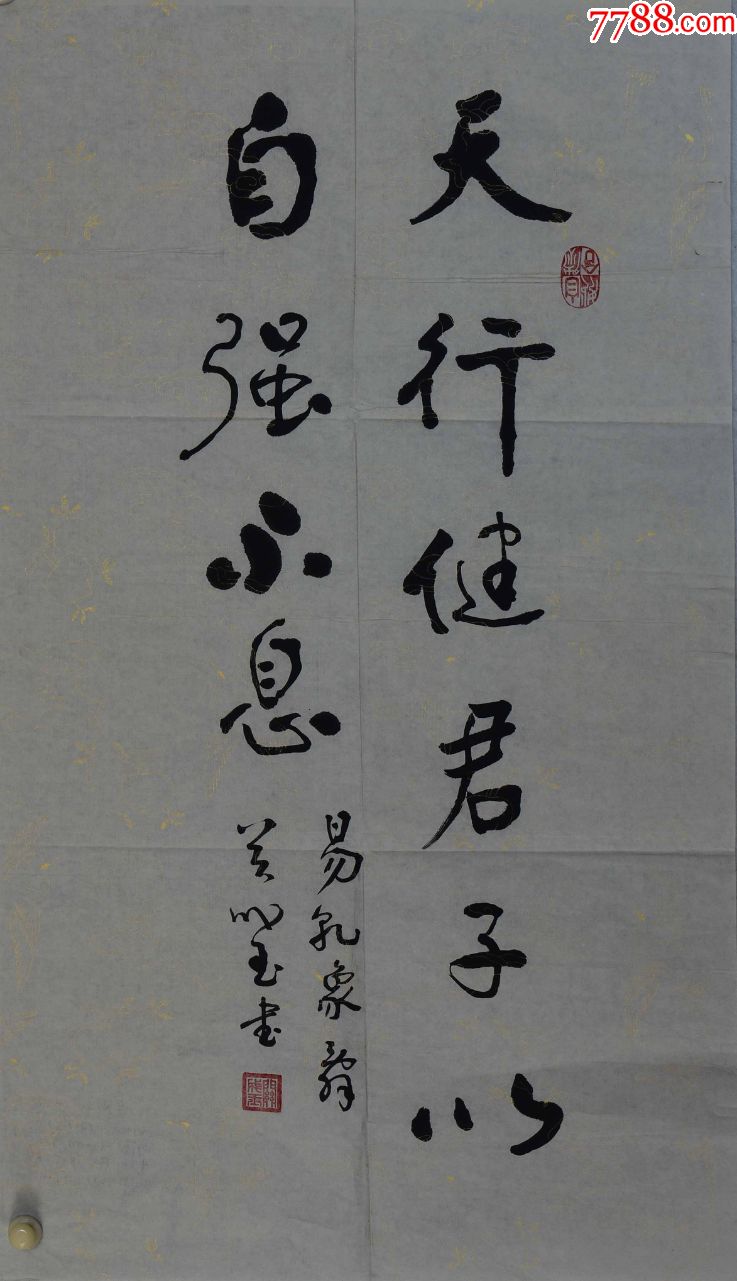 7788.com
天行健君子以
自强不息
易乾象辞
玉书